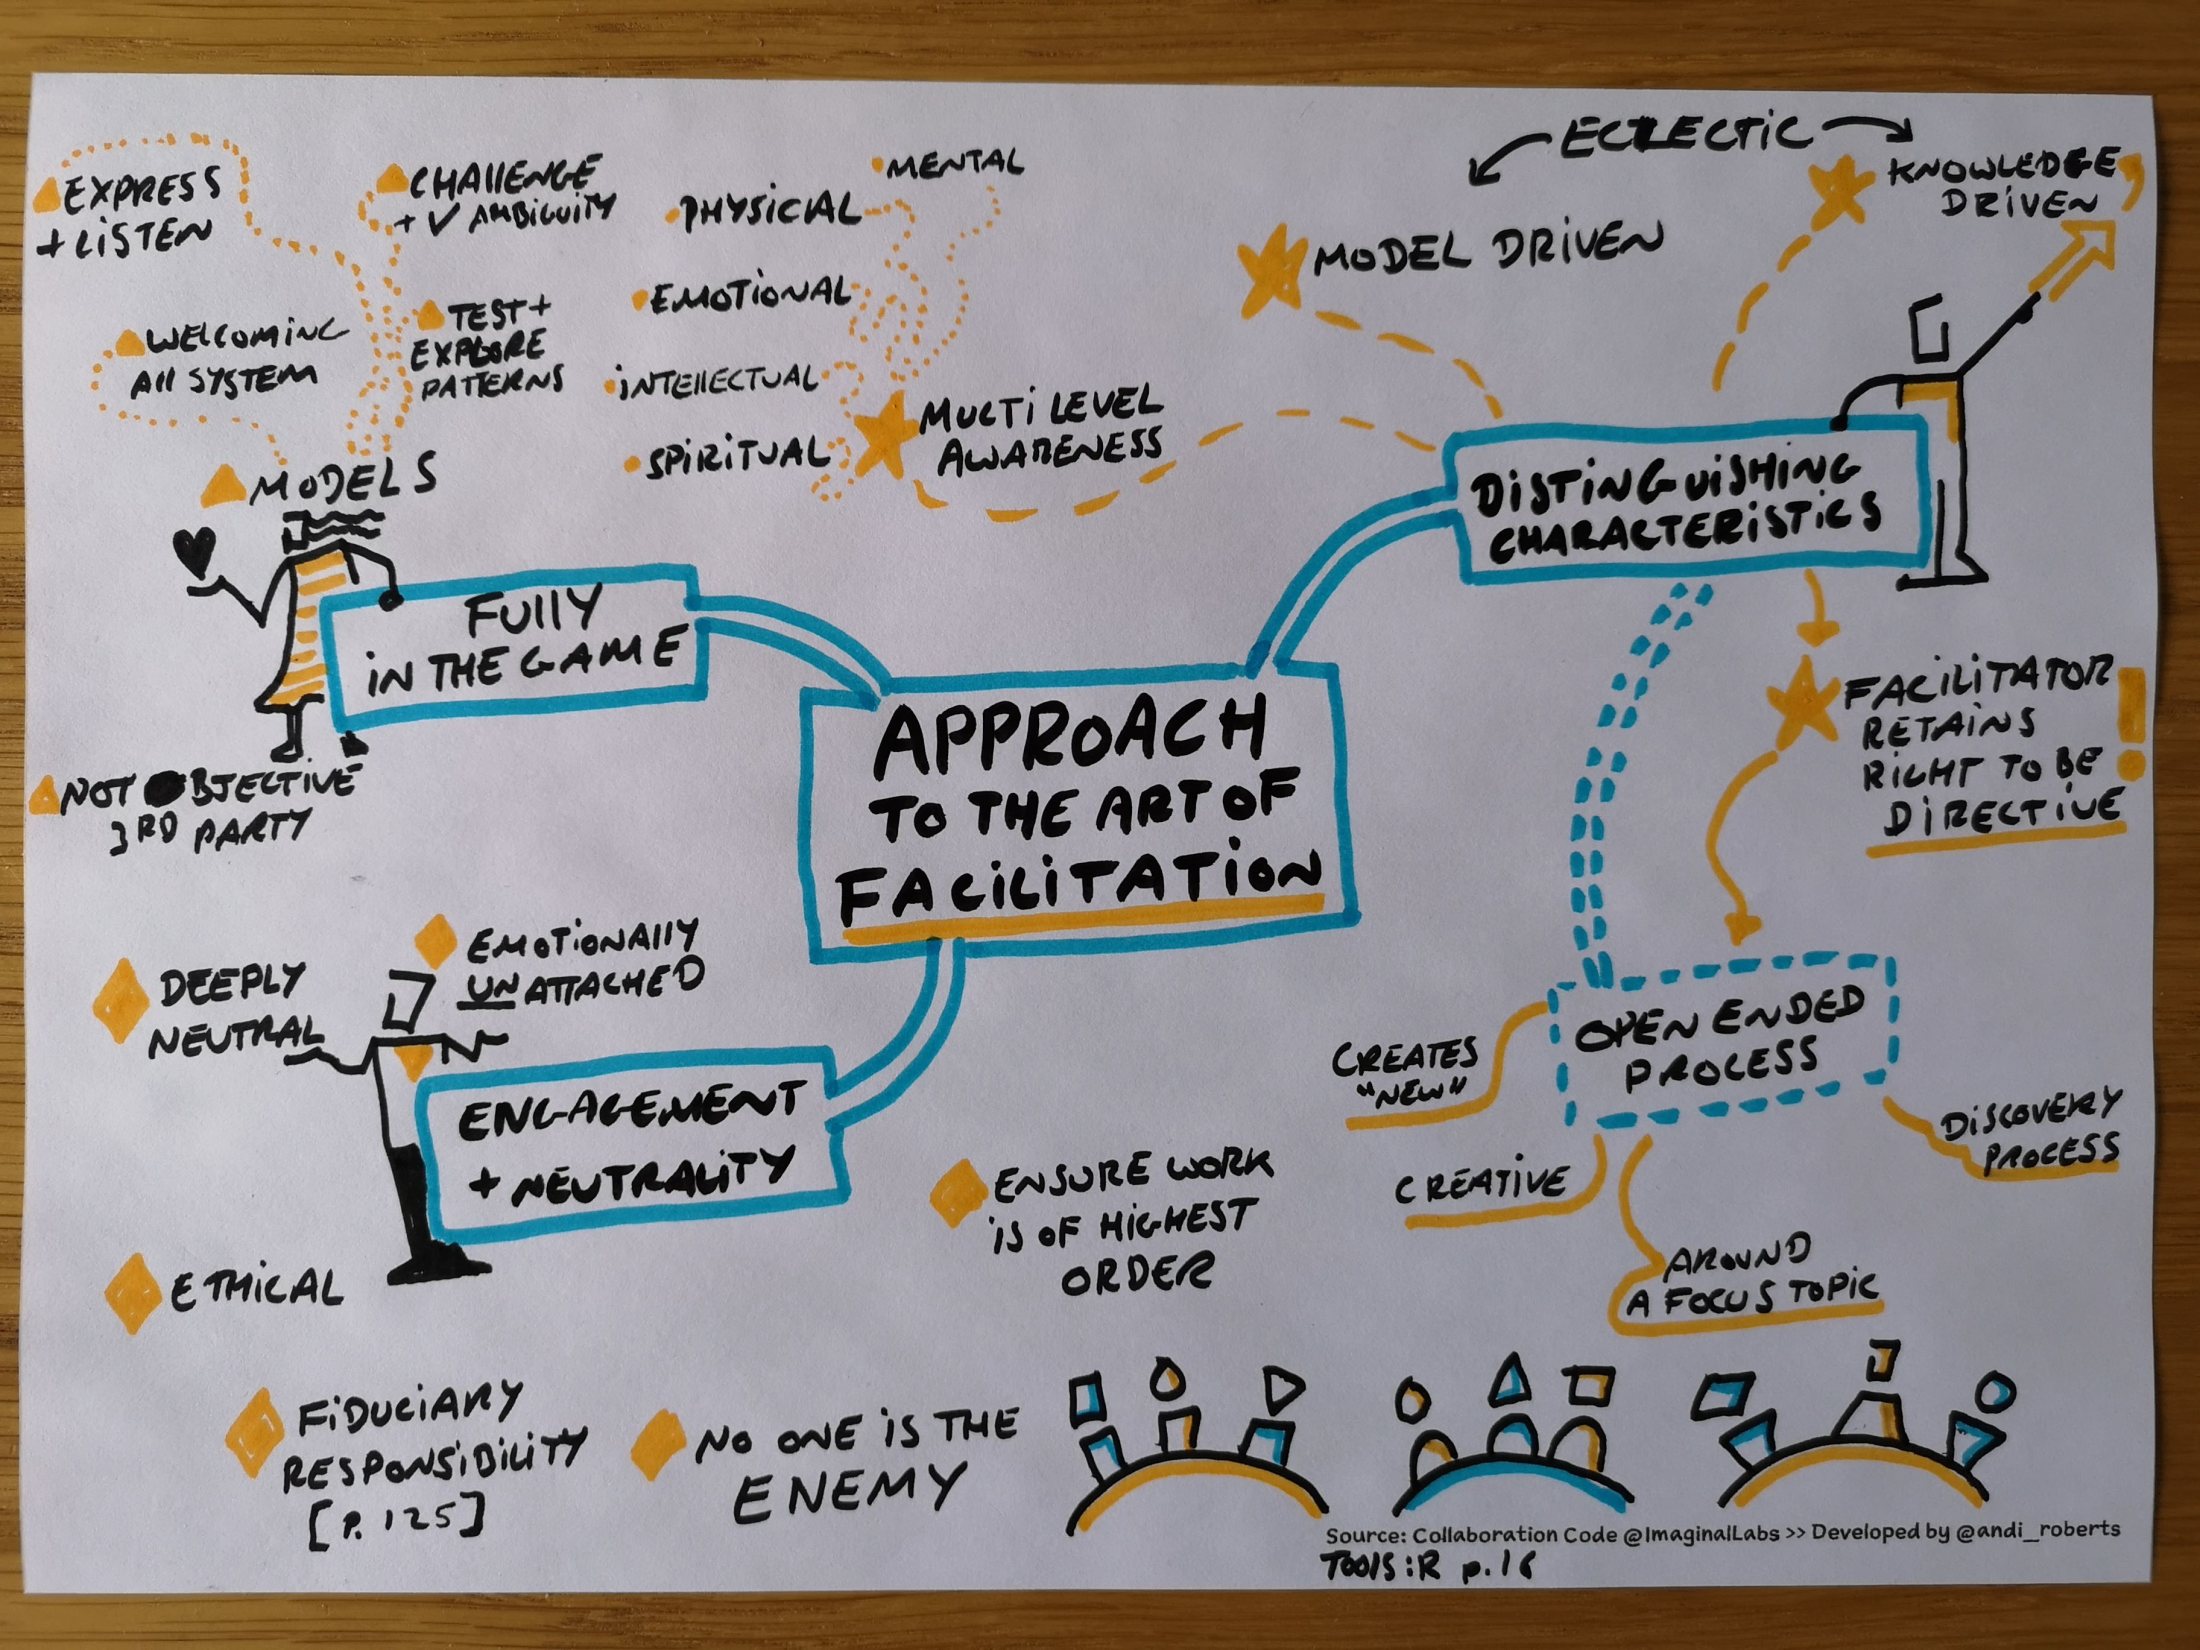 APPROACH
TO THE ART OF
FACILITATION
FULLY
IN THE GAME
MODELS
EXPRESS
+ LISTEN
WELCOMING
ALL SYSTEM
CHALLENGE
+ ✓ AMBIGUITY
TEST +
EXPLORE
PATTERNS
NOT OBJECTIVE
3RD PARTY
DISTINGUISHING
CHARACTERISTICS
MULTI LEVEL
AWARENESS
MENTAL
PHYSICAL
EMOTIONAL
INTELLECTUAL
SPIRITUAL
ECLECTIC
MODEL DRIVEN
KNOWLEDGE
DRIVEN
FACILITATOR
RETAINS
RIGHT TO BE
DIRECTIVE
!
OPEN ENDED
PROCESS
CREATES
"NEW"
CREATIVE
AROUND
A FOCUS TOPIC
DISCOVERY
PROCESS
ENGAGEMENT
+ NEUTRALITY
DEEPLY
NEUTRAL
EMOTIONALLY
UNATTACHED
ETHICAL
FIDUCIARY
RESPONSIBILITY
[P. 125]
NO ONE IS THE
ENEMY
ENSURE WORK
IS OF HIGHEST
ORDER
Source: Collaboration Code @ImaginalLabs >> Developed by @andi_roberts
TOOLS:R p.